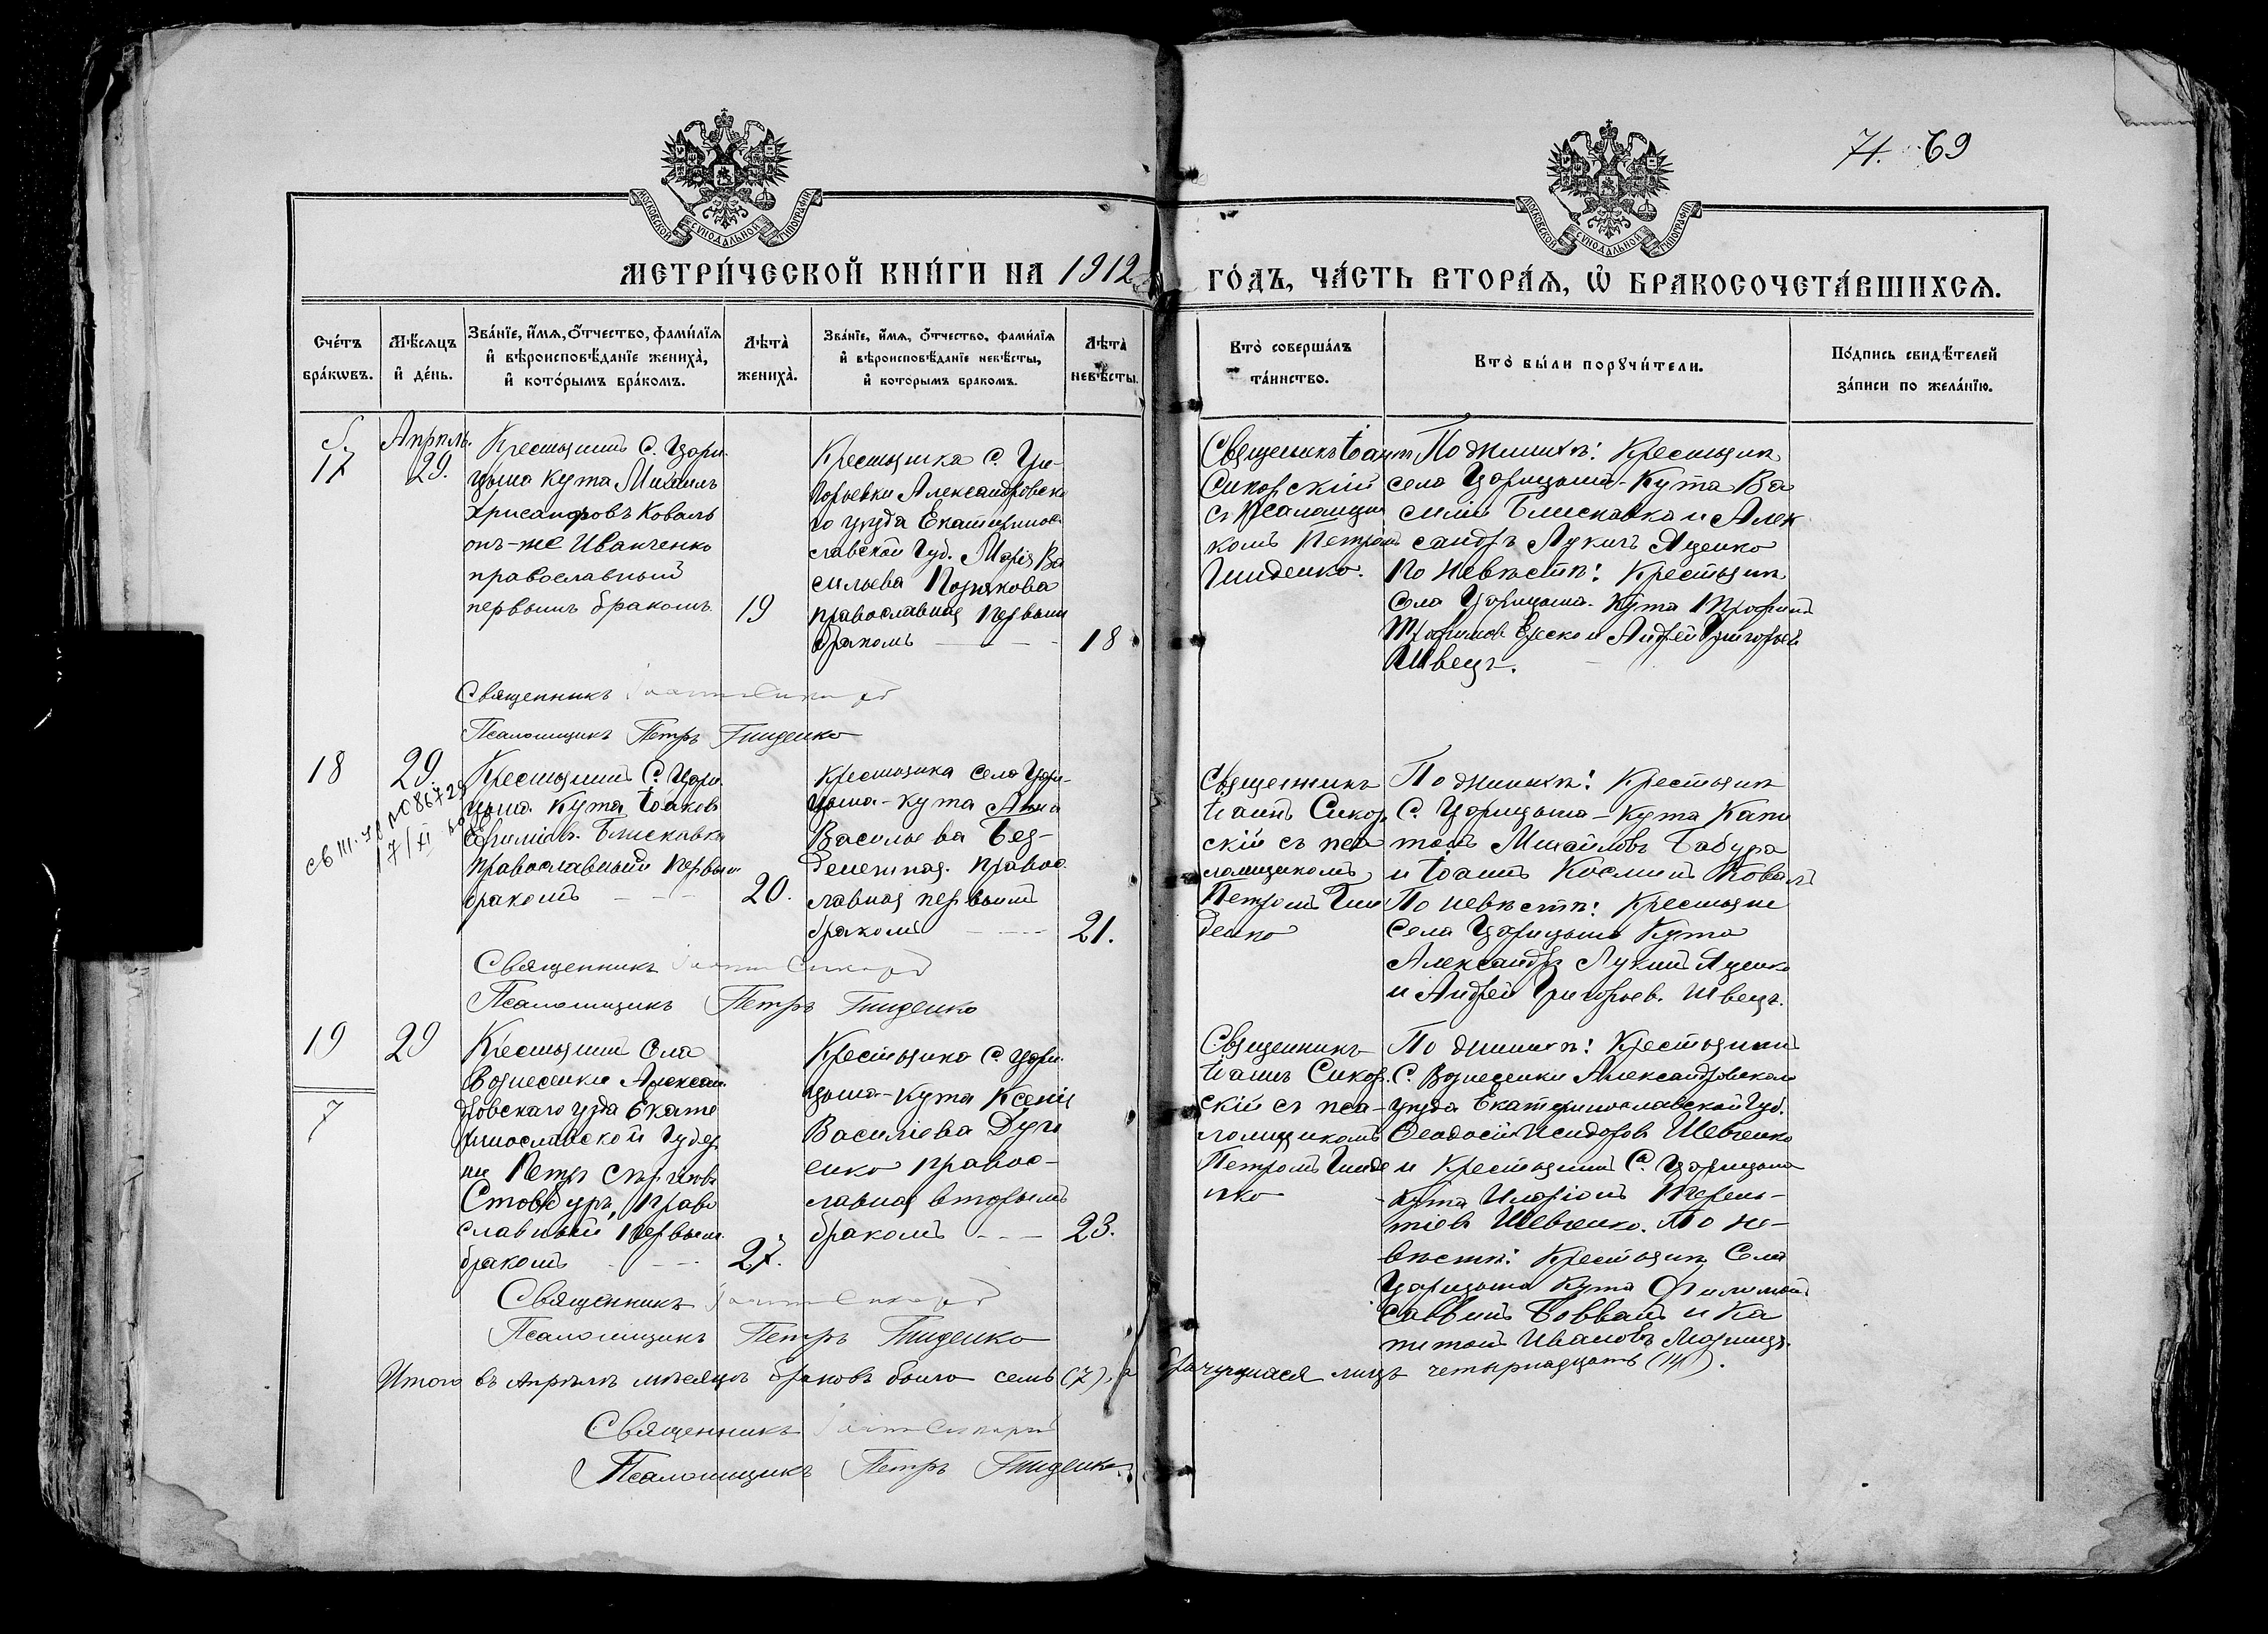 71. 69
МОСКОВСКОЙ СУНОДАЛЬНОЙ ТИПОГРАФІИ
МОСКОВСКОЙ СУНОДАЛЬНОЙ ТИПОГРАФІИ
МЕТРИ́ЧЕСКОЙ КНИ́ГИ НА 1912
ГО́ДЪ, ЧА́СТЬ ВТОРА́Ѧ, Ѽ БРАКОСОЧЕТА́ВШИХСѦ.
Сче́тъ
бра́кѡвъ.
Мѣ́сяцъ
и҆ де́нь.
Зва́нїе, и҆́мѧ, ѻ҆́тчество, фамѝлїѧ
и҆ вѣроисповѣ́данїе жениха̀,
и҆ кото́рымъ бра́комъ.
Лѣта̀
жениха̀.
Зва́нїе, и҆́мѧ, ѻ҆́тчество, фами́лїѧ
и҆ вѣроисповѣ́данїе невѣ́сты,
и҆ которымъ бракомъ.
Лѣта̀
невѣ́сты.
Кто̀ соверша́лъ
та́инство.
Кто̀ бы́ли порꙋчи́тели.
По́дпись свидѣ́телей
за́писи по жела́нїю.
17
Апрѣль.
29.
Крестьянинъ С. Цари-
цына Кута Михаилъ
Хрисанфовъ Коваль
онъ-же Иванченко
православный
первымъ бракомъ
19
Крестьянка С. Гри-
горьевки Александровска
го уѣзда Екатеринос
лавской Губ. Марія Ва
сильева Позднякова
православная первымъ
бракомъ
18
Священникъ Іоаннъ
Сикорскій
съ псаломщи
комъ Петромъ
Гниденко.
По женихѣ: Крестьяне
села Царицына-Кута Ва
силій Блискавка и Алек
сандръ Лукинъ Яценко
По невѣстѣ: Крестьяне
Села Царицына-Кута Трофимъ
и Андрей Григорьев
Швецъ.
Священникъ Іоаннъ Сикорскій
Псаломщикъ Петръ Гниденко
18
29.
17/XI
Крестьянинъ С. Цари
цына Кута Іоаковъ
Ефимовъ Блискавка
православный первым
бракомъ
20.
Крестьянка села Цари-
цына-Кута Анна
Васильева Без-
денежная. правос
лавная первымъ
бракомъ
21.
Священникъ
Іоаннъ Сикор
скій съ пса
ломщикомъ
Петромъ Гни
денко
По женихѣ: Крестьяне
С. Царицына-Кута Капи
тонъ Михайловъ Бабура
и Іоаннъ Косминъ Коваль
По невѣстѣ: Крестьяне
Села Царицына Кута
Александръ Лукинъ Яценко
и Андрей Григорьев. Швецъ.
Священникъ Іоаннъ Сикорскій
Псаломщикъ Петръ Гниденко
19
7
29
Крестьянинъ Села
Вознесенки Алексан
дровскаго уѣзда Екате
ринославской Губер
ніи Петръ Сергіевъ
Стовбуръ, право
славный первым
бракомъ
27.
Крестьянка С. Цари
цына-Кута Ксенія
Васильева
енко правос-
лавная вторымъ
бракомъ
23.
Священникъ
Іоаннъ Сикор
скій съ пса-
ломщикомъ
Петромъ Гниде
нко
По женихѣ: Крестьянинъ
С. Вознесенки Александровскаго
уѣзда Екатеринославской Губ.
Ѳеодосій Исидоровъ Шевченко
и Крестьянинъ С. Царицына
Кута Иларіонъ Терень-
тіевъ Шевченко. По не-
вѣстѣ: Крестьяне Села
Царицына Кута Филимонъ
Саввинъ Бовванъ и Ка
питонъ Ивановъ
Священникъ Іоаннъ Сикорскій
Псаломщикъ Петръ Гниденко
Итого въ Апрѣлѣ мѣсяцѣ браковъ было семь (7), а брачущихся лицъ четырнадцать (14).
Священникъ Іоаннъ Сикорскій
Псаломщикъ Петръ Гниденко